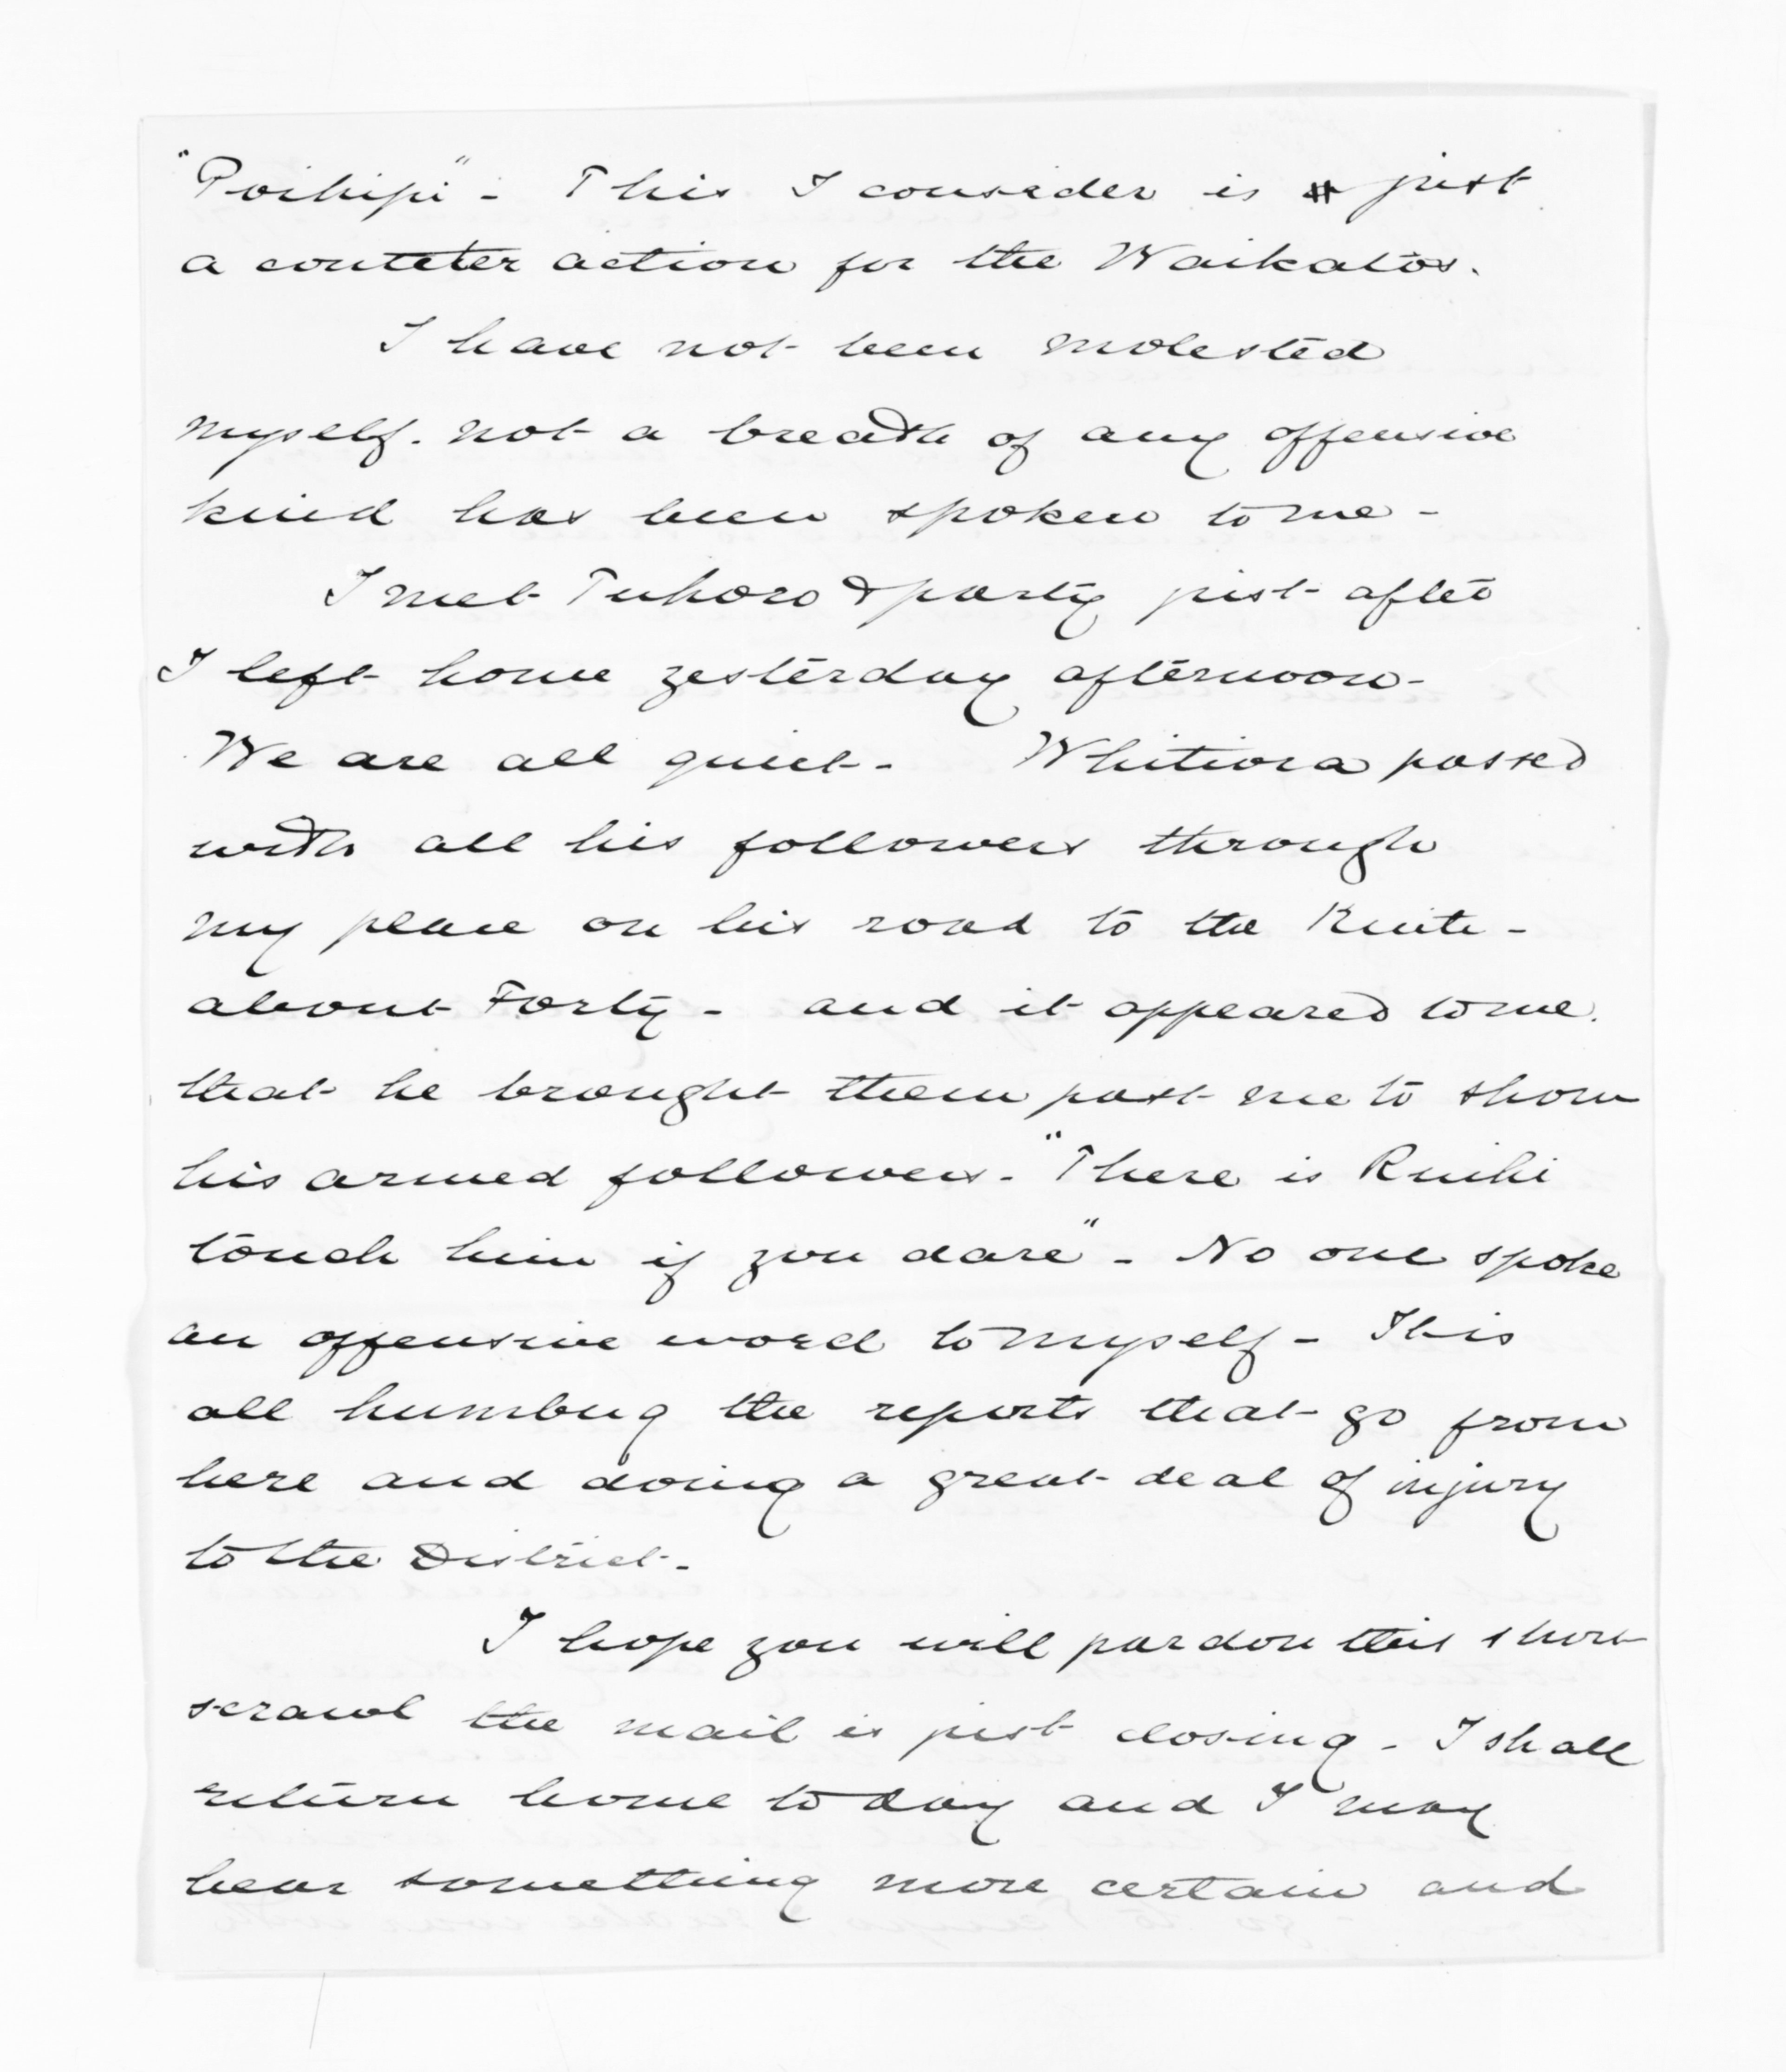 "Poihipi" - This I consider is just
a counter action for the Waikatos.
I have not been molested
myself. not a breath of any offensive
kind has been spoken to me -
I met Tuhoro & party just after
I left home yesterday afternoon -
We are all quiet - Whitiora passed
with all his followers through
my place on his road to the Kuiti -
about Forty - and it appeared to me.
that he brought them past me to show
his armed followers - "There is Ruihi
touch him if you dare" - No one spoke
an offensive word to myself - This
all humbug the reports that go from
here and doing a great deal of injury
to the District -
I hope you will pardon this short
scrawl the mail is just closing - I shall
return home to day and I may
hear something more certain and